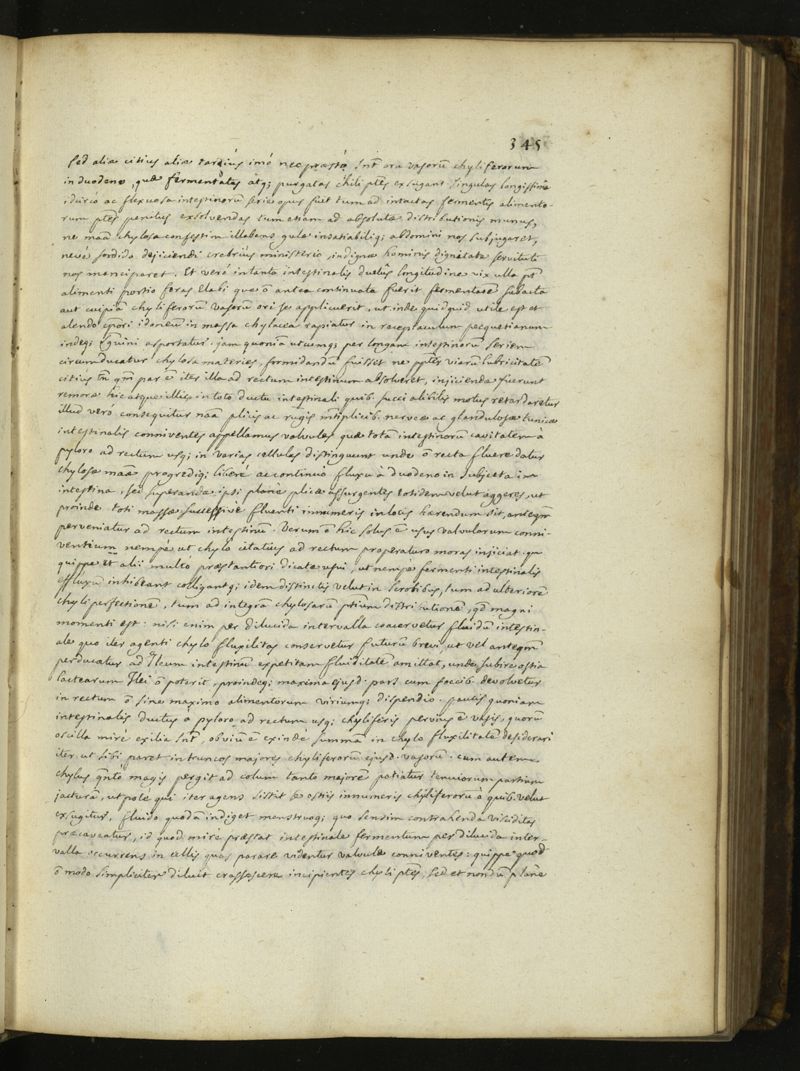 345
Sed aliæ citius aliæ tardius imò nec præstò Snt ora vasorũ chyliferorum
in duodeno, quæ fermentatas atq; purgatas chili ptes exsugant singulas longissimæ
idcirco ac flexuosæ intestinorũ serie opus fuit tum ad intactas fermentis alimento-
rum ptes penitus exsolvendas tum etiam ad absolutæ distributionis munus,
ne maã chylosa confestim illabens gulæ insatiabiliq; abdomini nos subjugaret,
nevè sordido dejiciendi crebrius ministerio, indignæ hominis dignitate servituti
nos manciparet. Et verò in tanta intestinalis ductûs longitudine vix ulla pt
alimenti portio foras elabi quæ õ antea continuata fuerit fermentatoẽ subacta
aut cuipiã chyliferorũ vasorũ ori se applicuerit, ut inde quidquid utile est et
alendo cpori idoneũ in massa chylacea rapiatur in receptaculum pecquetianum
indeq; sguini asportatur. jam quoniã utcumq; per longam intestinorũ seriem
circumducatur chylosa materies, formidandũ fuisset ne ppter viarũ lubricitatẽ
citius tñ qm par ẽ iter illa ad rectum intestinum absolveret, injiciendæ fuerunt
remoræ hic atque illic in toto ductu intestinali quib. succi alibilis motus retardaretur
illud vero consequitur naã plicis ac rugis mtiplicib. nerveæ ac glandulosæ tunicæ
intestinalis conniventes appellamus valvulas quæ totã intestinorũ cavitatem à
pyloro ad rectum usq; in varias cellulas distinguunt unde õ recta fluere datur
chylosæ maæ progrediq; liberè ac continuo fluxu à duodeno in subjecta in-
intestina, sed superandæ ipsi planè plicæ assurgentes totidem velut aggeres, ut
proinde toti massæ successivè fluenti innumeris in locis hærendum sit, anteqm
perveniatur ad rectum intestinũ. Verum õ hic solus ẽ usus valvularum conni-
ventium nempè ut chylo citatius ad rectum properaturo moras injiciat. qu
quippe et alii multò præstantiori dicatæ usui, ut nempe fermenti intestinalis
effluxũ inhibeant colligantq; idem distinctis velut in scrobibus, tum ad ulteriorẽ
chyli perfectionẽ, tum ad integrã chylosarũ ptium distributionẽ, qd magni
momenti est. nisi enim per dilucida intervalla coacervetur fluidũ intestin-
ale quo iter agenti chylo fluxilitas conservetur futurũ brevi, ut vel anteqm
perducatur ad Ileum intestinũ expetitam fluiditatẽ amittat, unde subire ostia
lactearum Ilei õ poterit, proindeq; maxima ejusd. pars cum foecib. devolvetur
in rectum õ sine maximo alimentorum viriumq; dispendio. sautis quoniam
intestinalis ductus a pyloro ad rectum usq; chyliferis pervius ẽ vasis, quorũ
oscilla mirè exilia snt, obviũ ẽ exinde summã in chylo fluxilitatẽ desiderari
iter ut sibi paret in truncos majores chyliferorũ ejusd. vasorũ. cum autem
chylus qntò magis pergit ad colum tanto majorẽ patiatur tenuiorum partium
jacturã, utpotè qui iter agens sistit se ostiis innumeris chyliferorũ à quib. velut
exsugitur, fluido quodã indiget menstruoq; quo sensim contrahenda visciditas
præcaveatur, id quod mirè præstat intestinale fermentum per dilucida inter-
valla occurrens in cellis quas parare videntur valvulæ conniventes: quippe quod
õ modo simpliciter diluit crassescere incipientes chyli ptes, sed et nondũ planè